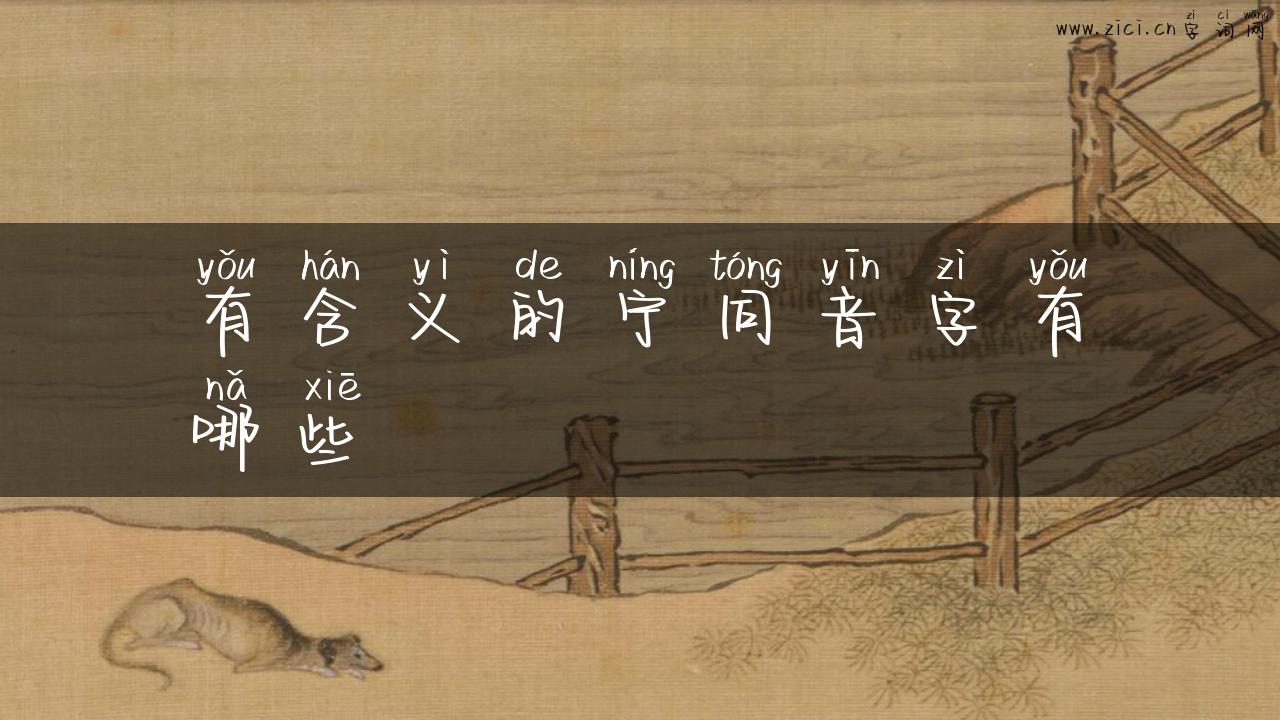 zì cí wǎng
www.zici.cn 字 词 网
yǒu hán yì de níng tóng yīn zì yǒu
有 含 义 的 宁 同 音 字 有
nǎ xiē
哪 些